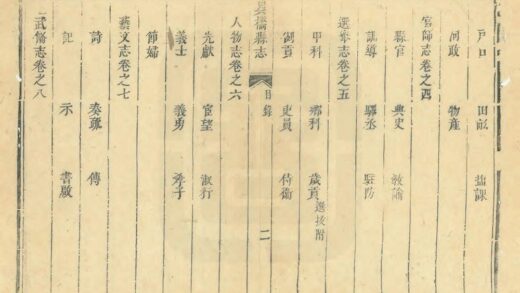 戸口 田畝 鹽課
河政 物產
官師志卷之四
縣官 典史 教諭
訓導 驛丞 駐防
選舉志卷之五
甲科 鄉科 歲貢 選拔附
貢 吏員 侍衛
吳橋縣志 目錄 二
人物志卷之六
先獻 宦望 淑行
義士 義勇 孝子
節婦
藝文志卷之七
詩 奏疏 傳
記 示 書啟
武備志卷之八